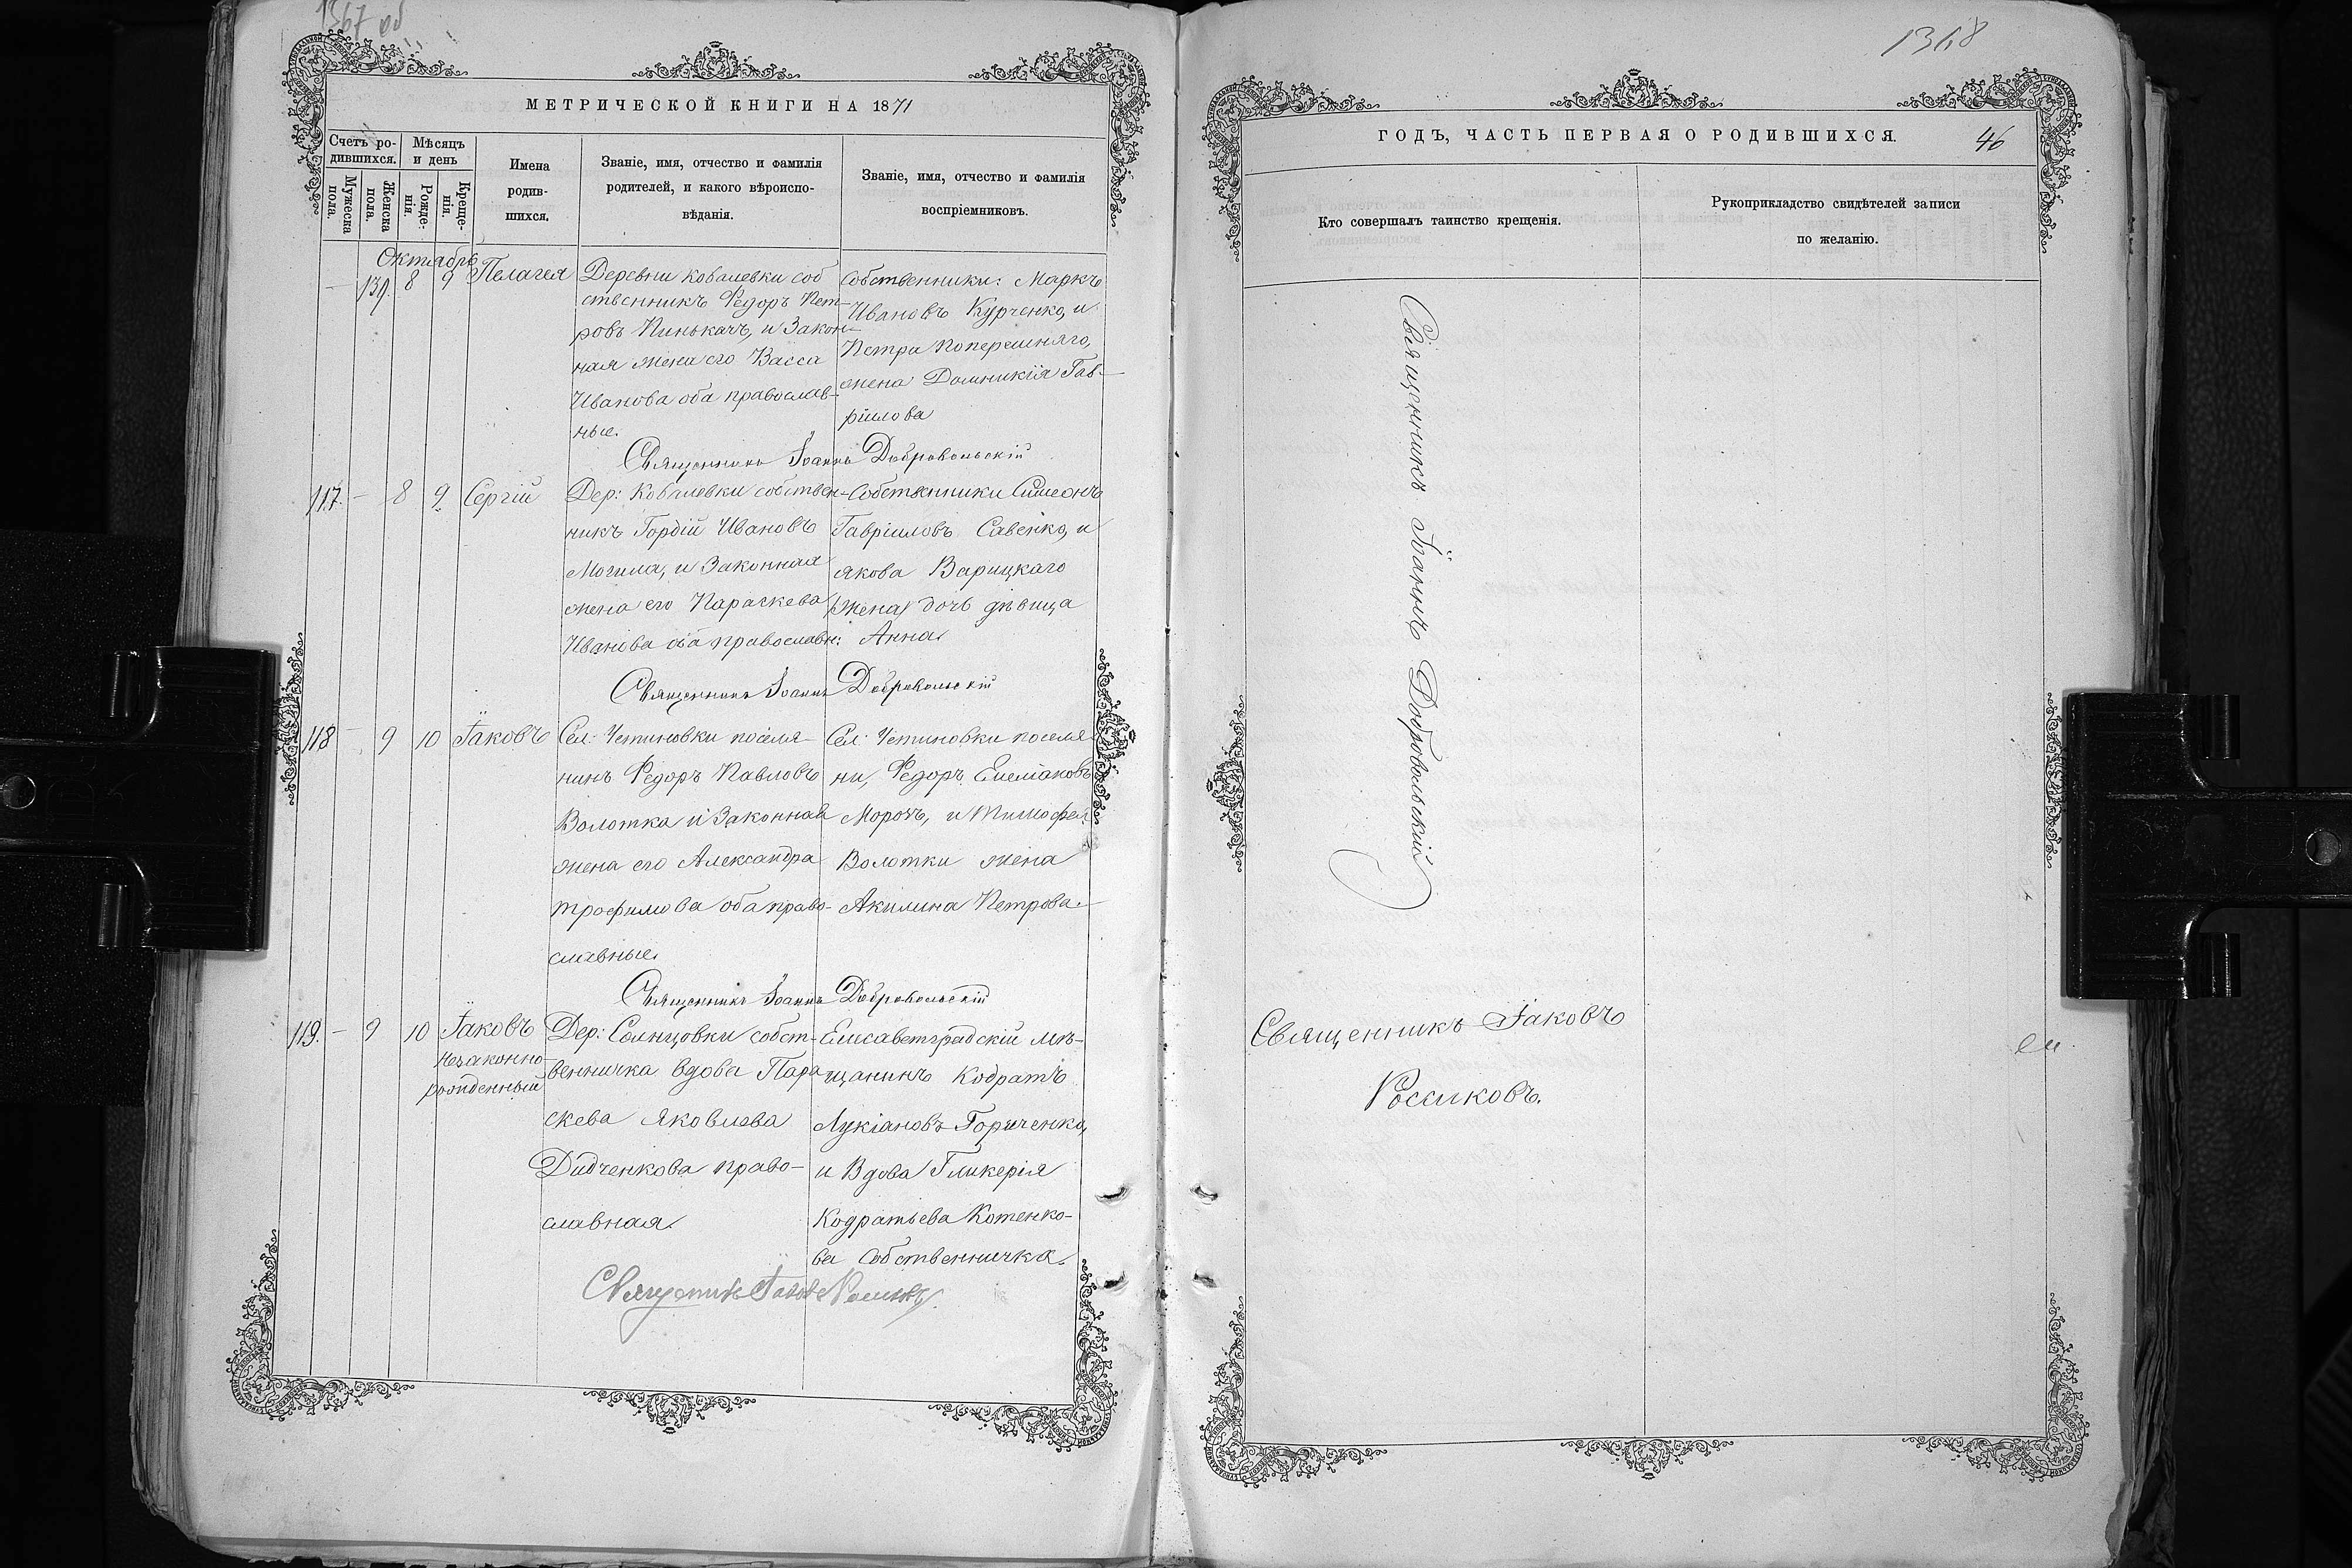 1367 об
МЕТРИЧЕСКОЙ КНИГИ НА 1871
Счетъ ро-
дившихся.
Мѣсяцъ
и день
Мужеска
пола.
Женска
пола.
Рожде-
нія.
Креще-
нія.
Имена
родив-
шихся.
Званіе, имя, отчество и фамилія
родителей, и какого вѣроиспо-
вѣданія.
Званіе, имя, отчество и фамилія
воспріемниковъ.
Октябрь
— 139. 8 9 Пелагея
Деревни Ковалевки соб
ственникъ Ѳедоръ Пет-
ровъ Пинькачъ, и закон-
ная жена его Васса
Иванова оба православ-
ные.
Собственники: Маркъ
Ивановъ Курченко, и
Петра Поперешняго,
жена Домникія Гав-
ріилова
Священникъ Іоаннъ Добровольскій
117. — 8 9 Сергій
Дер: Ковалевки собствен-
никъ Гордій Ивановъ
Могила, и законная
жена его Параскева
Иванова оба православн:
Собственники Симеонъ
Гавріиловъ Савенко, и
Якова Варицкаго
(жена) дочь дѣвица
Анна.
Священникъ Іоаннъ Добровольскій
118 — 9 10 Іаковъ
Сел: Устиновки поселя-
нинъ Ѳедоръ Павловъ
Волотка и законная
жена его Александра
Трофимова оба право-
славные.
Сел: Устиновки поселя
ни, Ѳедоръ Емеліановъ
Морозъ, и Тимофея
Волотки жена
Акилина Петрова.
Священникъ Іоаннъ Добровольскій
119. — 9 10 Іаковъ
незаконно-
рожденный
Дер: Солнцовки собст-
венничка вдова Пара
скева Яковлева
Дидченкова право-
славная.
Елисаветградскій мѣ-
щанинъ Кодратъ
Лукіановъ Гориченко,
и Вдова Гликерія
Кодратьева Котенко-
ва собственничка.
Священникъ Іаковъ Россиковъ
1368
ГОДЪ, ЧАСТЬ ПЕРВАЯ О РОДИВШИХСЯ.
46
Кто совершалъ таинство крещенія.
Рукоприкладство свидѣтелей записи
по желанію.
Священникъ Іоаннъ Добровольскій
Священникъ Іаковъ
Россиковъ.